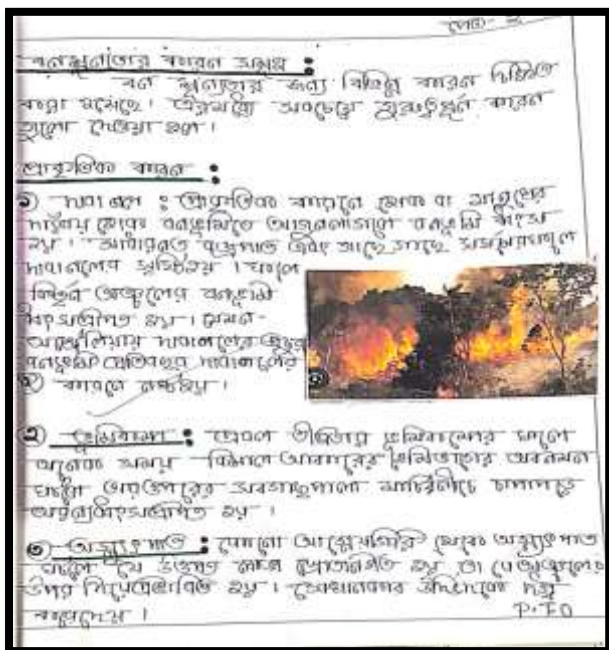 পেজ- ২
বনশূন্যতার কারন সমূহ :
বন শূন্যতার জন্য বিভিন্ন কারন চিহ্নিত
করা হয়েছে। এরমধ্যে সবচেয়ে গুরুত্বপূর্ন কারন
তুলে দেওয়া হল।
প্রাকৃতিক কারন :
১) দাবানল : প্রাকৃতিক কারনে হোক বা মানুষের
দ্বারায় হোক বনভূমিতে আগুনলাগলে বনভূমি ধ্বংস
হয়। সাধারনত বজ্রপাত এবং গাছে গাছে
দাবানলের সৃষ্টিহয়। ফলে
বিস্তীর্ন অঞ্চলের বনভূমি
ধ্বংসপ্রাপ্ত হয়। যেমন-
অস্ট্রেলিয়ায় দাবানলের
বনভূমি প্রতিবছর দাবানলের
কারনে নষ্টহয়।
২) ভূমিকম্প : প্রবল তীব্রতার ভূমিকম্পের ফলে
অনেক সময় বিশাল আকারের ভূমিভাগের অবনমন
ঘটলে তার উপরের সব গাছপালা মাটিরনীচে চাপাপড়ে
অরন্যধ্বংসপ্রাপ্ত হয়।
৩) অগ্ন্যুৎপাত : কোনো আগ্নেয়গিরি থেকে অগ্ন্যুৎপাত
ঘটলে যে উত্তপ্ত লাভা হয় তা যে অঞ্চলের
উপর দিয়ে প্রবাহিত হয়। সেখানকার উদ্ভিদকে দগ্ধ
করেদেয়।
P.T.O